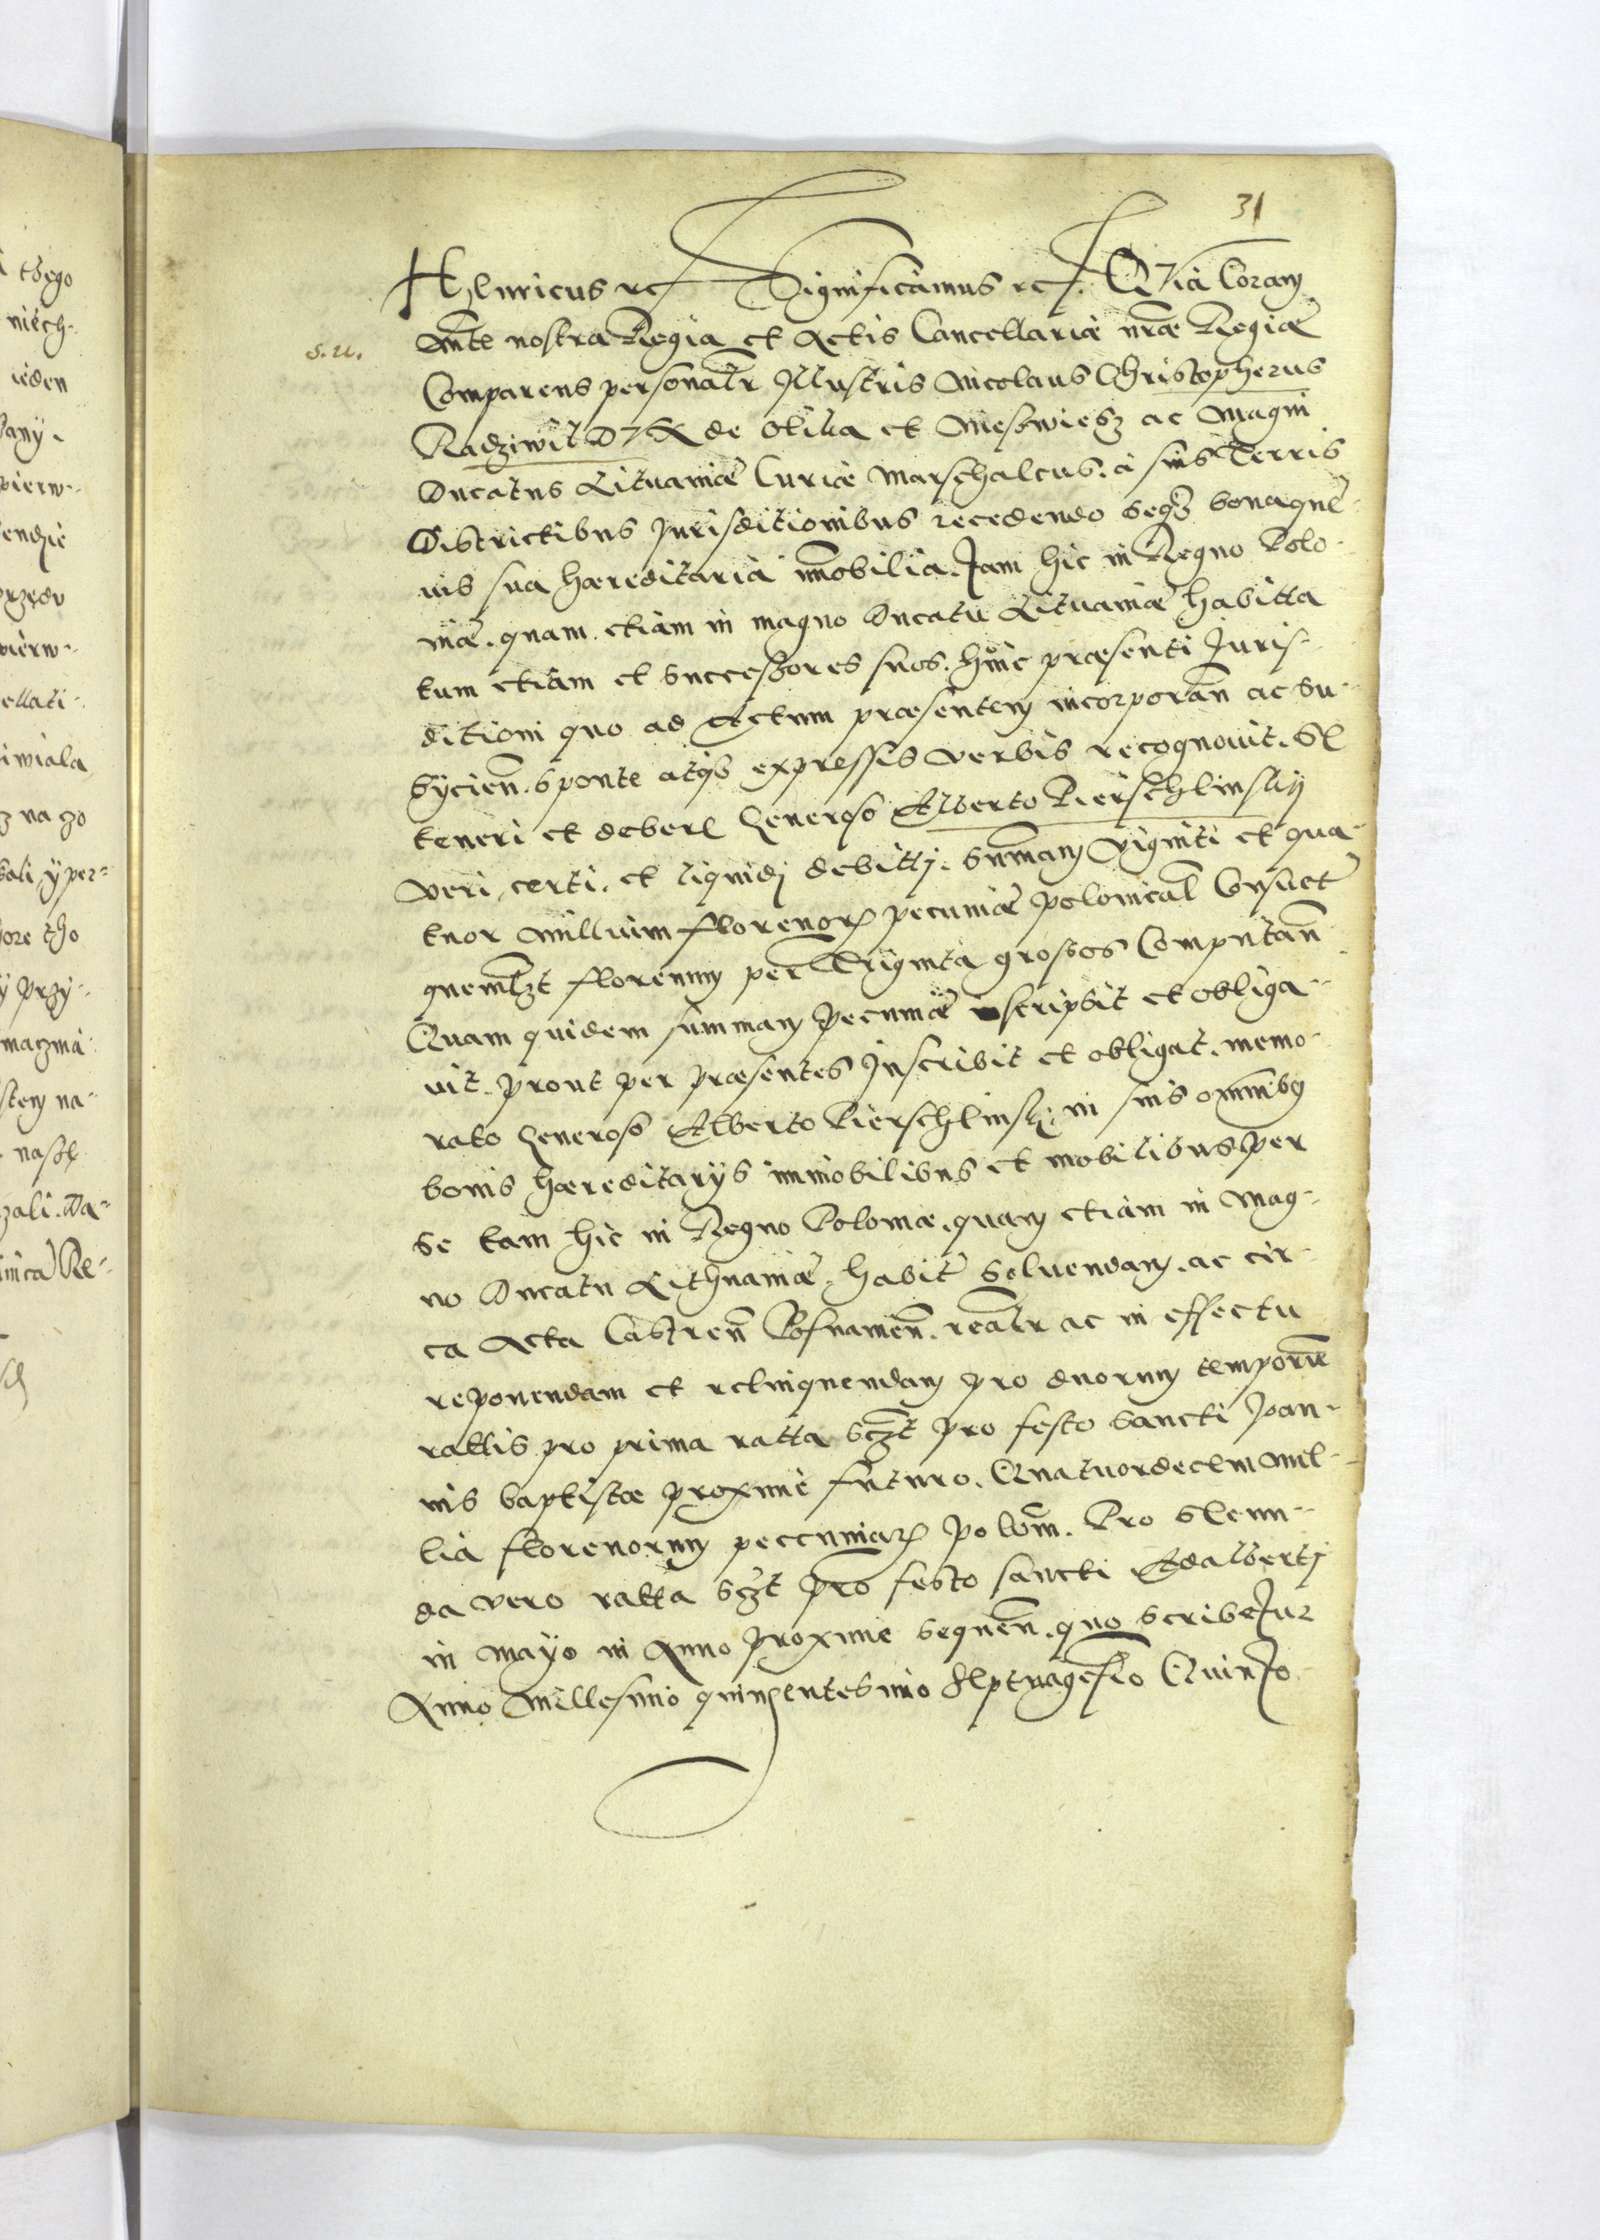 31
Henricus etc Significamus etc. QVia Coram
Mte nostra Regia et Actis Cancellariæ nræ Regiæ
s. u.
Comparens personalr Illustris Nicolaus Christopherus
Radziwil DVX de Olika et Nieswiesz ac Magni
Ducatus Lituaniæ Curiæ Marschalcus. à suis Terris
Districtibus Jurisditionibus recedendo seqz bonaque
sua hæreditaria imobilia. Tam hic in Regno Polo-
niæ. quam etiam in magno Ducatu Lituaniæ habitta
tum etiam et successores suos. huic præsenti Juris-
ditioni quo ad Actum præsentem incorporan ac su-
bycien. sponte atqz expressis verbis recognovit. Se
teneri et debere Generoso Alberto Pierschlinsky
veri, certi. et liquidj debittj. summam Viginti et qua-
tuor Millium florenorum pecuniæ polonical Consuet
quemlzt florenum per Triginta grossos Computan
Quam quidem summam pecuniæ inscripsit et obliga-
vit. prout per præsentes Inscribit et obligat. memo-
rato Generoso Alberto Pierschlinsk. in suis omnibus
bonis hæreditarys immobilibus et mobilibus per
se tam hic in Regno Poloniæ. quam etiam in Mag-
no Ducatu Lithuaniæ. habit solvendam. ac cir-
ca Acta Castren Posnanien. realr ac in effectu
reponendam et relinquendam pro duorum temporum
rattis. pro prima ratta sczt pro festo Sancti Joan-
nis baptistæ proxime futuro. Quatuordecem Mil-
lia florenorum peccuniarum polon. Pro secun-
da vero ratta sczt pro festo sancti Adalbertj
in Mayo in Anno proxime sequen. quo scribetur
Anno Millesimo quingentesimo septuagesimo Quinto